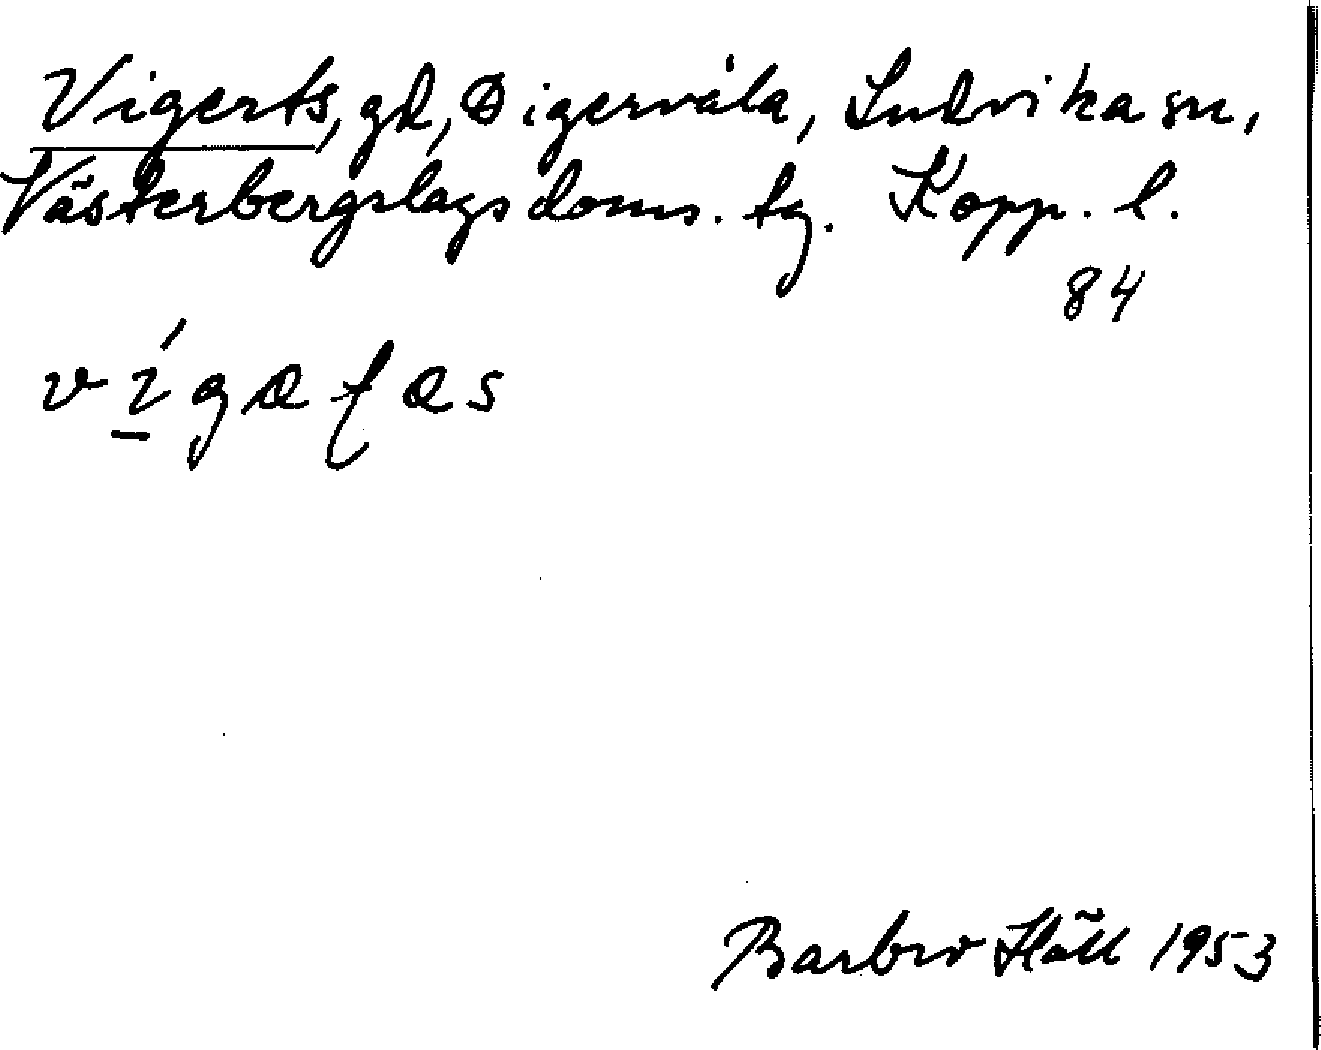 Vigerts, gd, Digervåla, Ludvika sn,
Västerbergslags doms. tg. Kopp. l.
84
Barbro Häll 1953